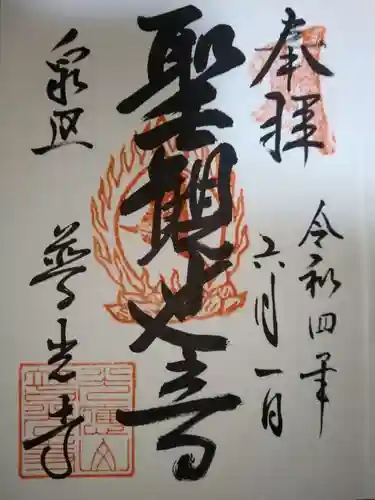 奉拝
令和四年
六月一日
聖観世音
普光寺